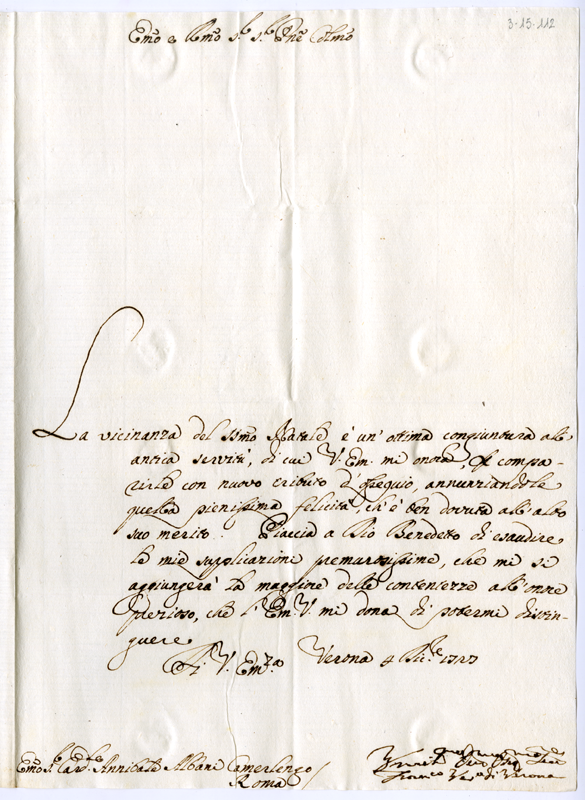 3-15-112
Emo e Rmo Sr. Sr. Pne Colmo
La vicinanza del SSmo Natale è un' ottima congiuntura all'
antica servitù, di cui V. Em. mi onora, di compa-
rirle con nuovo tributo d'ossequio, annunziandole
questa pienissima felicità, ch'è ben dovuta all'alto
suo merito. Piaccia a Dio Benedetto di esaudire
le mie supplicazioni premurosissime, che mi si
aggiungerà la massime delle contentezze all'onore
specioso, che l'Em. V. mi dona di potermi distin-
guere
Di V. Emza Verona 4 Dic.e 1727
Emo Sr. Cardle Annibale Albani Camerlengo
Roma
Franco Vo di Verona